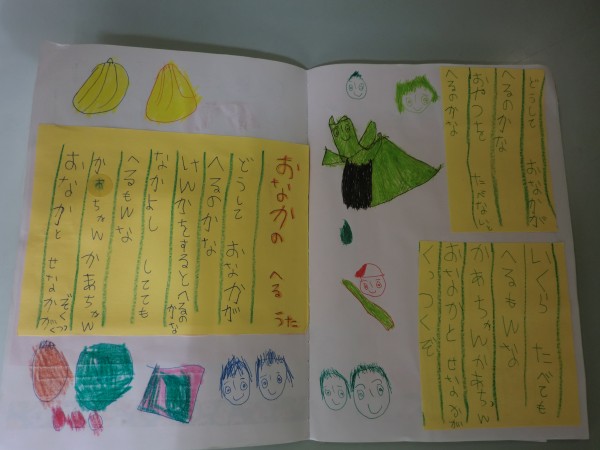 おなかの へる うた
どうして おなかが
へるのかな
けんかをするとへるのかな
なかよし してても
へるもんな
かあちゃん かあちゃん
おなかと せなかがくっつくぞ
どうして おなかが
へるのかな
おやつを たべないと
へるのかな
いくら たべても
へるもんな
かあちゃんかあちゃん
おなかと せなかが
くっつくぞ